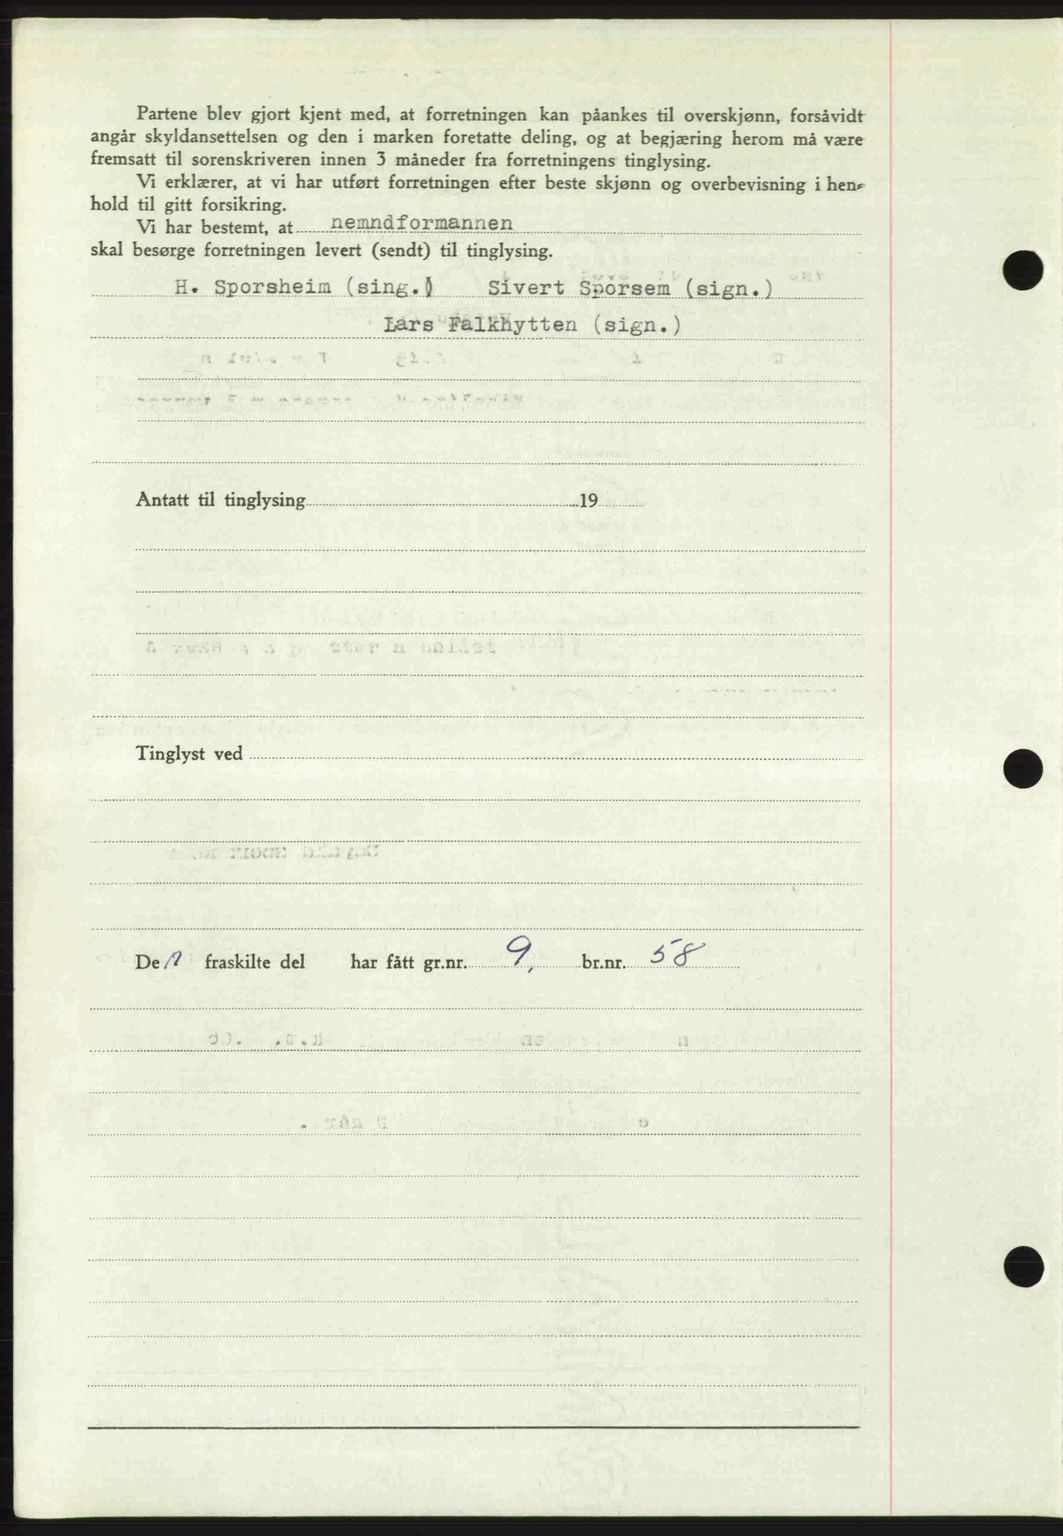 Partene blev gjort kjent med, at forretningen kan påankes til overskjønn, forsåvidt
angår skyldansettelsen og den i marken foretatte deling, og at begjæring herom må være
fremsatt til sorenskriveren innen 3 måneder fra forretningens tinglysing.
Vi erklærer, at vi har utført forretningen efter beste skjønn og overbevisning i hen-
hold til gitt forsikring.
Vi har bestemt, at nemndformannen
skal besørge forretningen levert (sendt) til tinglysing.
H. Sporsheim (sing.) Sivert Sporsem (sign.)
Lars Falkhytten (sign.)
Antatt til tinglysing 19
Tinglyst ved
Den fraskilte del har fått gr.nr. 9, br.nr. 58